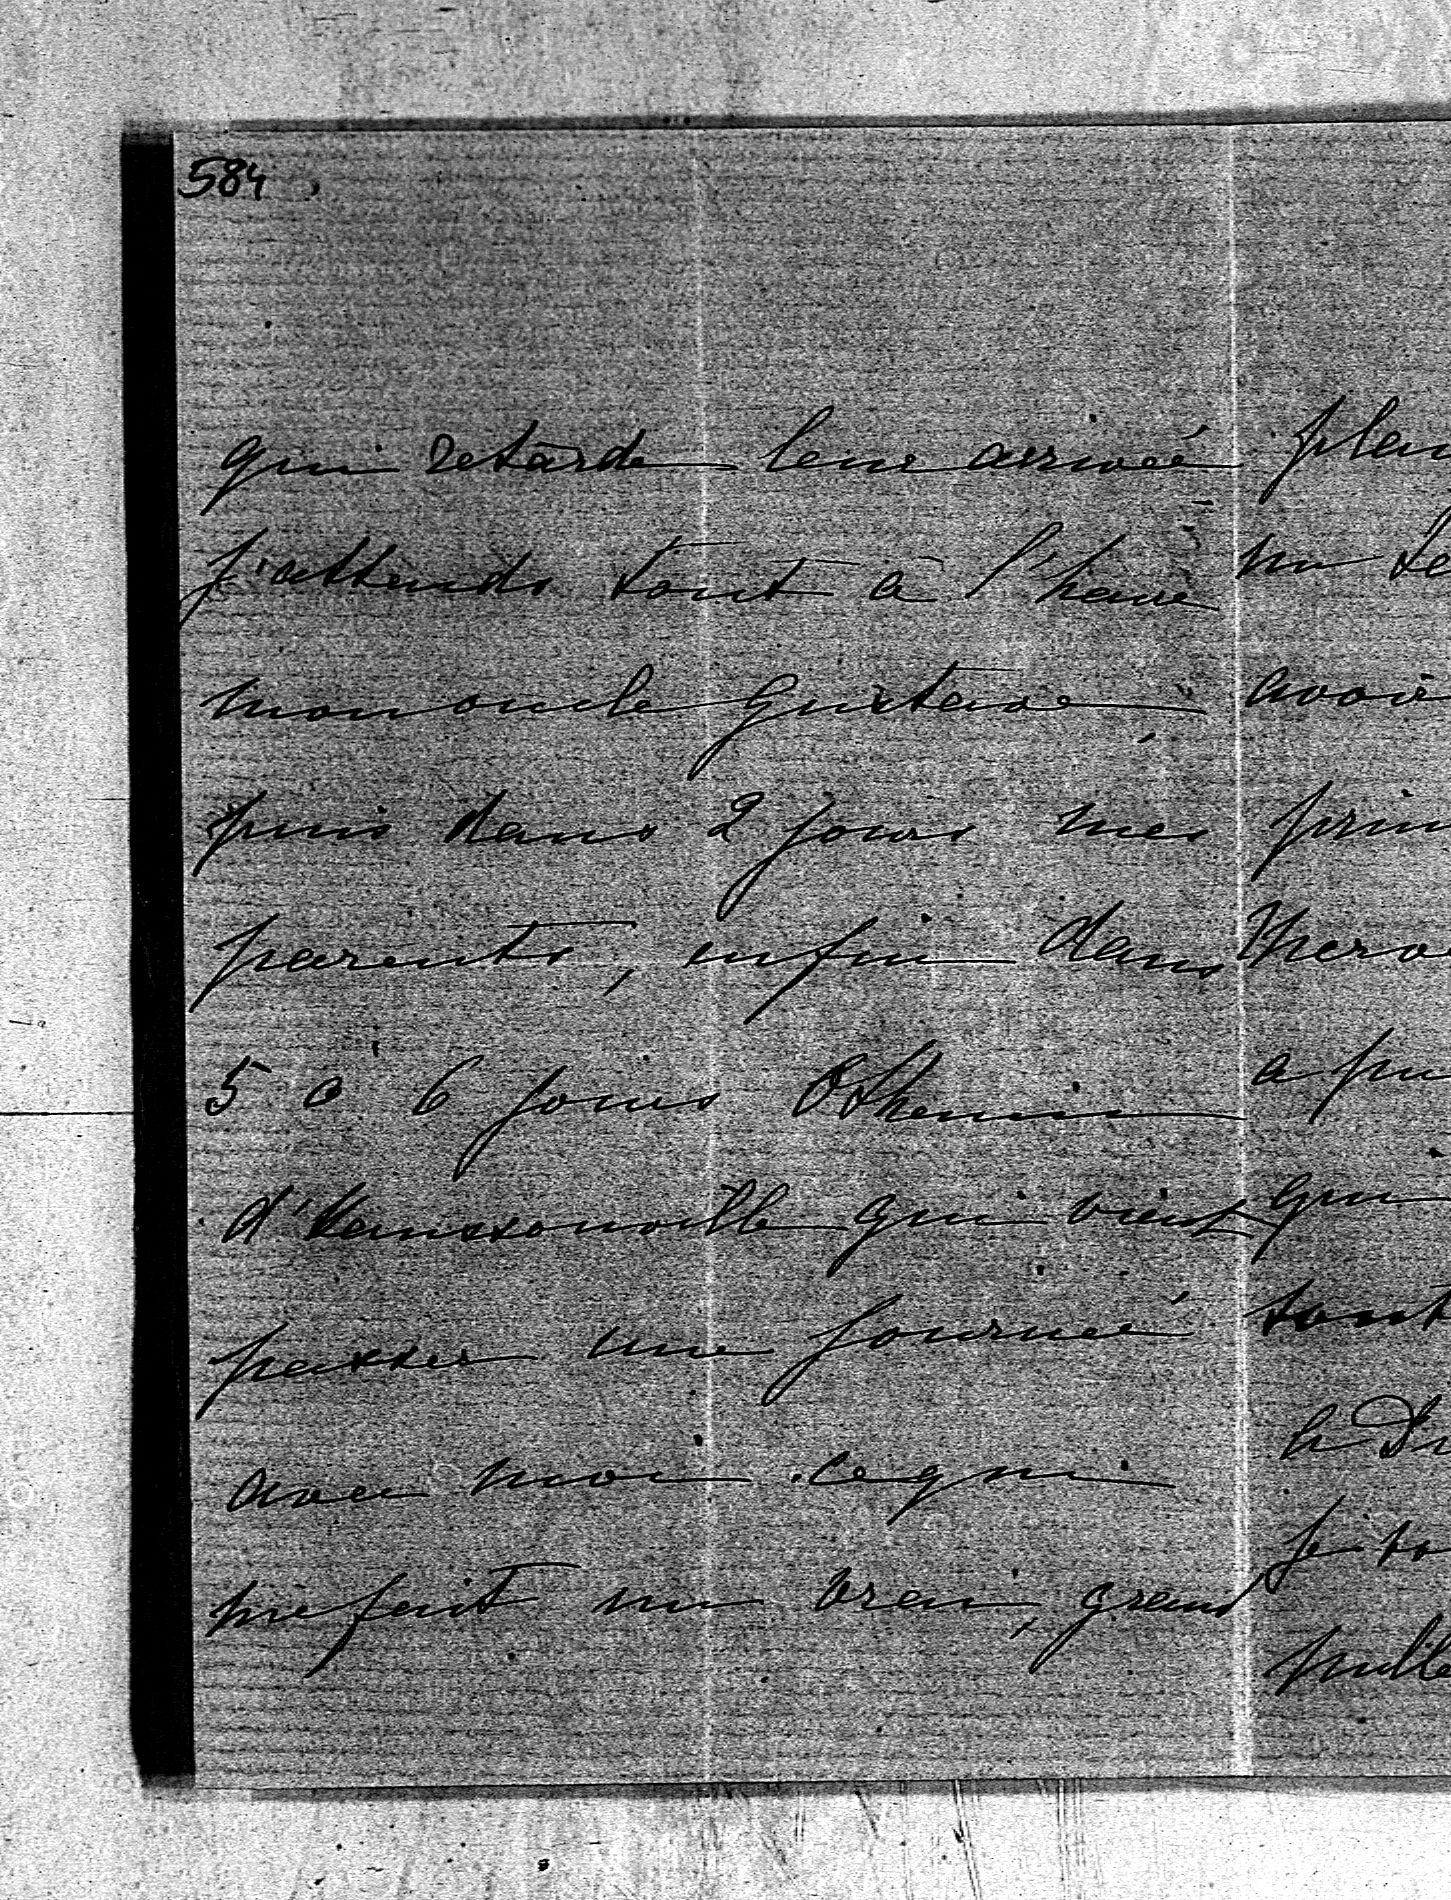 584
qui retarde leur arrivée
j'attends tout à l'heure
mon oncle Gustave,
puis dans 2 jours mes
parents, enfin dans
5 à 6 jours Othenin
d'Haussonville qui vient
passer une journée
avec moi. ce qui
me fait un vrai, grand
plai
un te
avoir
prin
Merve
a pu
qui
tout